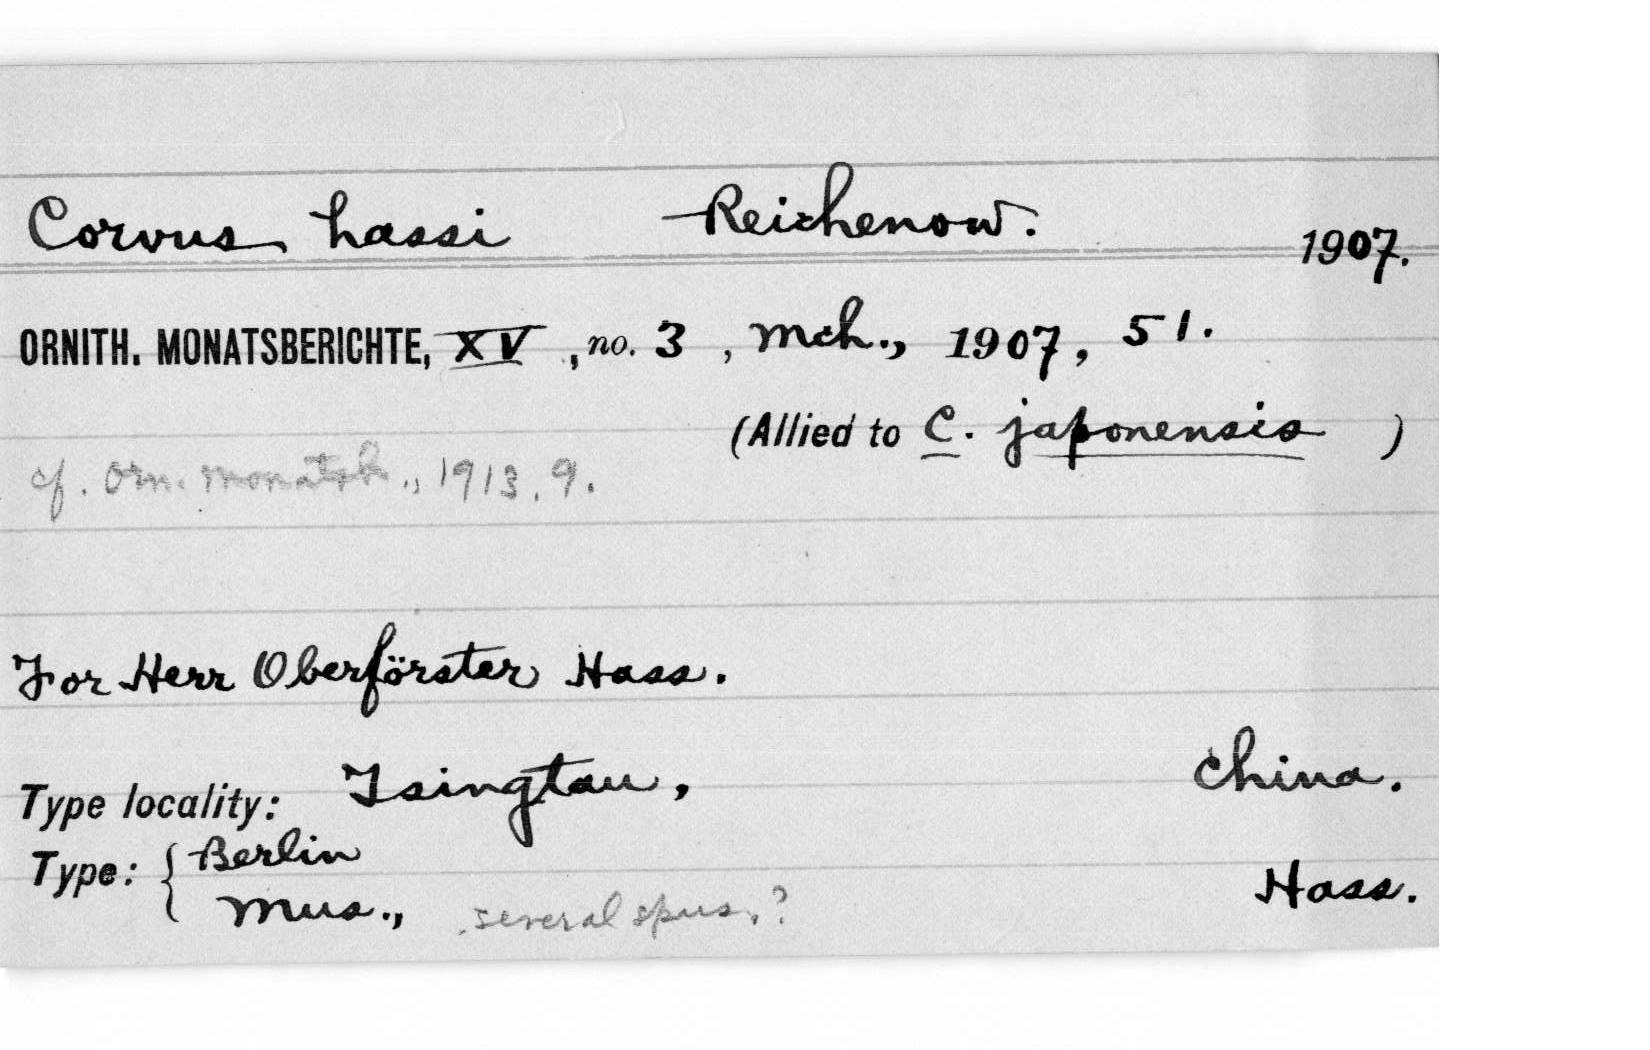 Corvus hassi Reichenow. 1907.
ORNITH. MONATSBERICHTE, XV, no. 3, Mch., 1907, 51.
(Allied to C. japonensis )
cf. Orn. Monatsb., 1913, 9.
For Herr Oberförster Hass.
Type locality: Tsingtau, China.
Type: { Berlin
Mus., several spns.? Hass.